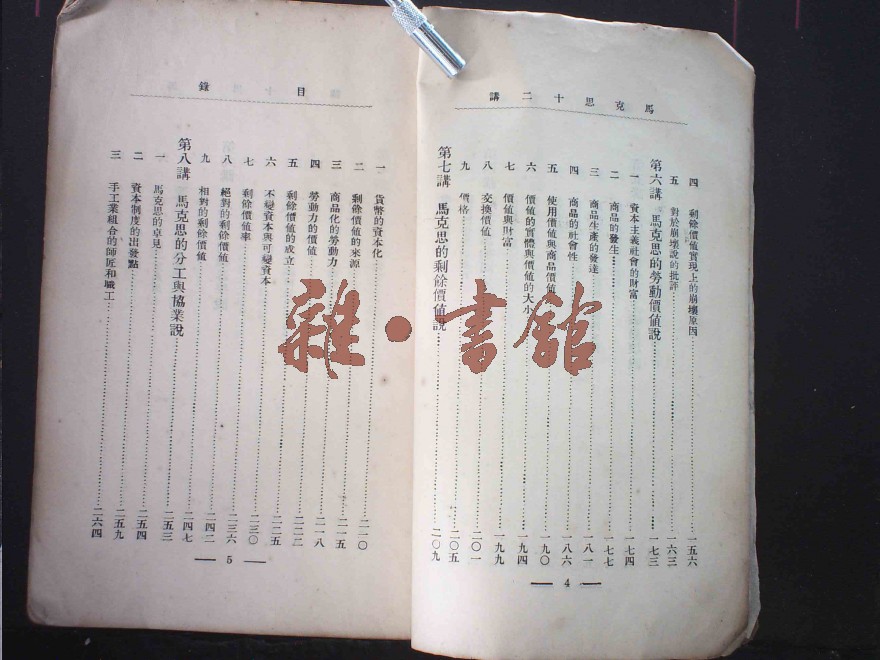 馬克思十二講
四 剩餘價值實現上的崩壞原因……一五六
五 對於崩壞說的批評……一六三
第六講 馬克思的勞動價值說……一七三
一 資本主義社會的財富……一七四
二 商品的發生……一七七
三 商品生產的發達……一八一
四 商品的社會性……一八六
五 使用價值與商品價值……一九〇
六 價值的實體與價值的大小……一九四
七 價值與財富……一九九
八 交換價值……二〇一
九 價格……二〇五
第七講 馬克思的剩餘價值說……二〇九
— 4 —
目錄
一 貨幣的資本化……二一〇
二 剩餘價值的來源……二一五
三 商品化的勞動力……二一八
四 勞動力的價值……二二二
五 剩餘價值的成立……二二五
六 不變資本與可變資本……二三〇
七 剩餘價值率……二三六
八 絕對的剩餘價值……二四二
九 相對的剩餘價值……二四七
第八講 馬克思的分工與協業說……二五三
一 馬克思的卓見……二五四
二 資本制度的出發點……二五九
三 手工業組合的師匠和職工……二六四
— 5 —
雜·書館